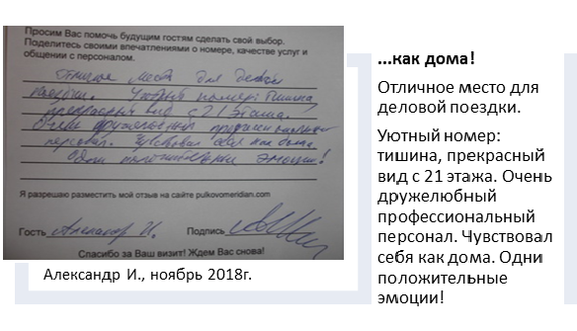 Просим Вас помочь будущим гостям сделать свой выбор.
Поделитесь своими впечатлениями о номере, качестве услуг и
общении с персоналом.
Отличное место для деловой
поездки. Уютный номер: тишина,
прекрасный вид с 21 этажа.
Очень дружелюбный профессиональный
персонал. Чувствовал себя как дома.
Одни положительные эмоции!
Я разрешаю разместить мой отзыв на сайте pulkovomeridian.com
Гость Александр И. Подпись
Спасибо за Ваш визит! Ждем Вас снова!
Александр И., ноябрь 2018г.
...как дома!
Отличное место для
деловой поездки.
Уютный номер:
тишина, прекрасный
вид с 21 этажа. Очень
дружелюбный
профессиональный
персонал. Чувствовал
себя как дома. Одни
положительные
эмоции!